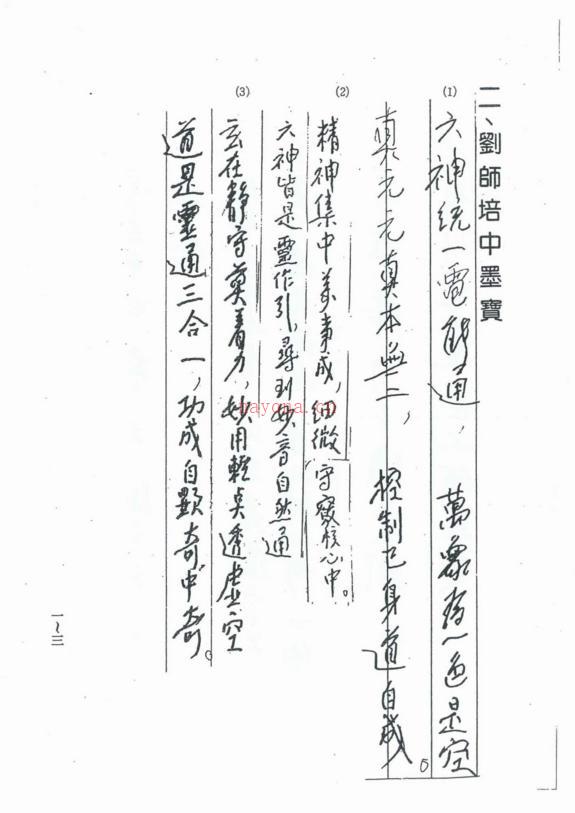 二、劉師培中墨寶
(1) 六神統一電能通, 萬象一色是空
真元元真本無二, 控制己身道自成。
(2) 精神集中萬事成,細微守竅心中。
六神皆是靈作引,尋到妙音自然通
(3) 玄在靜守莫着力,妙用輕點透虛空
道是靈通三合一,功成自顯奇中奇。
一~三
nayona.cn